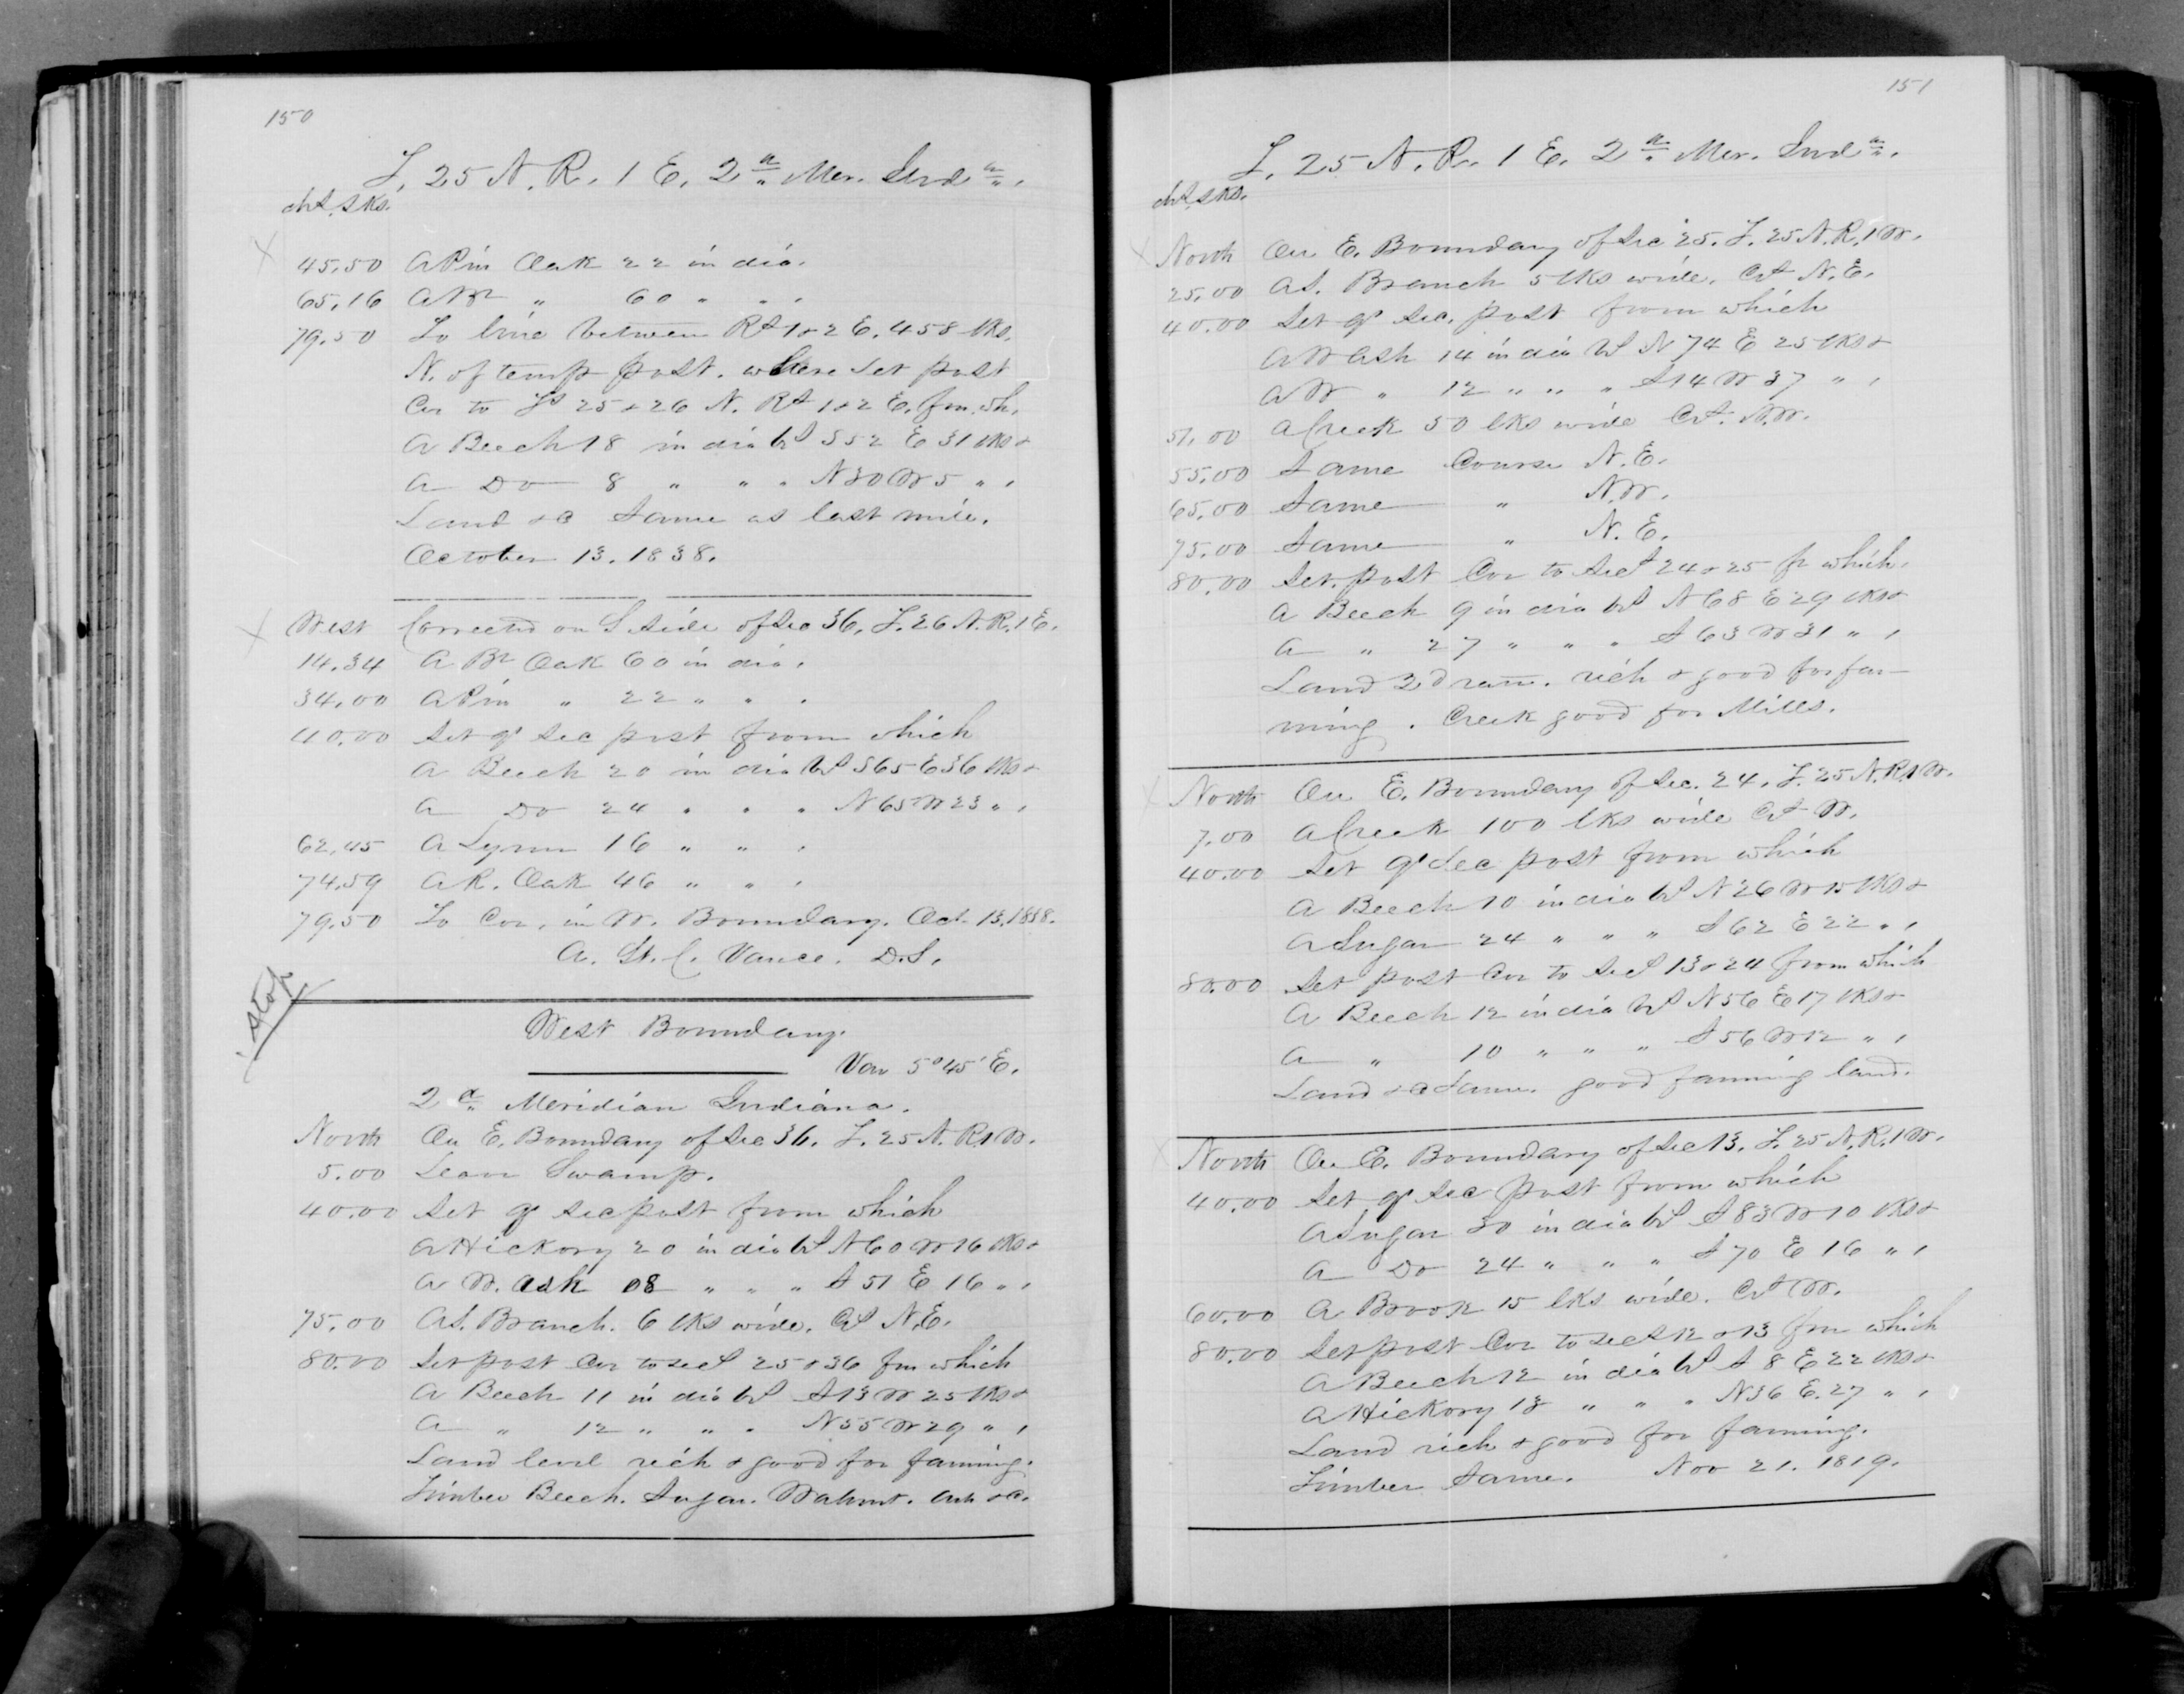 150
T. 25 N. R. 1 E. 2d Mer. Inda.
chs. lks.
45.50 A Pin Oak 22 in dia.
65.16 A Br " 60 " " .
79.50 To line between Rs 1 & 2 E. 458 lks.
N. of temp post. where set post
Cor to Ts 25 & 26 N. Rs 1 & 2 E. fm. wh.
A Beech 18 in dia bs S 52 E 31 lks &
A Do 8 " " " N 30 W 5 " .
Land &c Same as last mile.
October 13. 1838.
West Corrected on S side of Sec 36, T. 26 N. R. 1 E.
14.34 A Br Oak 60 in dia.
34.00 A Pin " 22 " " .
40.00 Set qr Sec post from which
A Beech 20 in dia bs S 65 E 36 lks &
A Do 24 " " " N 65 W 23 " .
62.45 A Lynn 16 " " .
74.59 A R. Oak 46 " " .
79.50 To Cor. in W. Boundary. Oct. 13. 1838.
A. St. C. Vance. D.S.
Stop
West Boundary.
Var 5° 45' E.
2d Meridian Indiana.
North On E. Boundary of Sec 36. T. 25 N. R 1 W.
5.00 Leave Swamp.
40.00 Set qr Sec post from which
A Hickory 20 in dia bs N 60 W 16 lks &
A W. Ash 08 " " " S 51 E 16 " .
75.00 A S. Branch. 6 lks wide. Cs N.E.
80.00 Set post Cor to secs 25 & 36 fm which
A Beech 11 in dia bs S 13 W 25 lks &
A " 12 " " " N 55 W 29 " .
Land level rich & good for farming.
Timber Beech. Sugar. Walnut. Ash &c.
151
T. 25 N. R. 1 E. 2d Mer. Inda.
chs. lks.
North On E. Boundary of Sec 25. T. 25 N. R. 1 W.
25.00 A S. Branch 5 lks wide. Cs N.E.
40.00 Set qr Sec. post from which
A W Ash 14 in dia bs N 74 E 25 lks &
A W " 12 " " " S 14 W 37 " .
51.00 A Creek 50 lks wide Cs. N.W.
55.00 Same Course N.E.
65.00 Same " N.W.
75.00 Same " N.E.
80.00 Set post Cor to Secs 24 & 25 fr which.
A Beech 9 in dia bs N 68 E 29 lks &
A " 27 " " " S 63 W 31 " .
Land 2d rate. rich & good for far-
ming. Creek good for Mills.
North On E. Boundary of Sec. 24. T. 25 N. R. 1 W.
7.00 A Creek 100 lks wide Cs W.
40.00 Set qr Sec post from which
A Beech 10 in dia bs N 26 W 15 lks &
A Sugar 24 " " " S 62 E 22 " .
80.00 Set post Cor to Secs 13 & 24 from which
A Beech 12 in dia bs N 56 E 17 lks &
A " 10 " " " S 56 W 12 " .
Land &c Same. good farming land.
North On E. Boundary of Sec 13. T. 25 N. R. 1 W.
40.00 Set qr Sec post from which
A Sugar 30 in dia bs S 83 W 10 lks &
A Do 24 " " " S 70 E 16 " .
60.00 A Brook 15 lks wide. Cs W.
80.00 Set post Cor to secs 12 & 13 fm which
A Beech 12 in dia bs S 8 E 22 lks &
A Hickory 18 " " " N 36 E. 27 " .
Land rich & good for farming.
Timber Same. Nov 21. 1819.